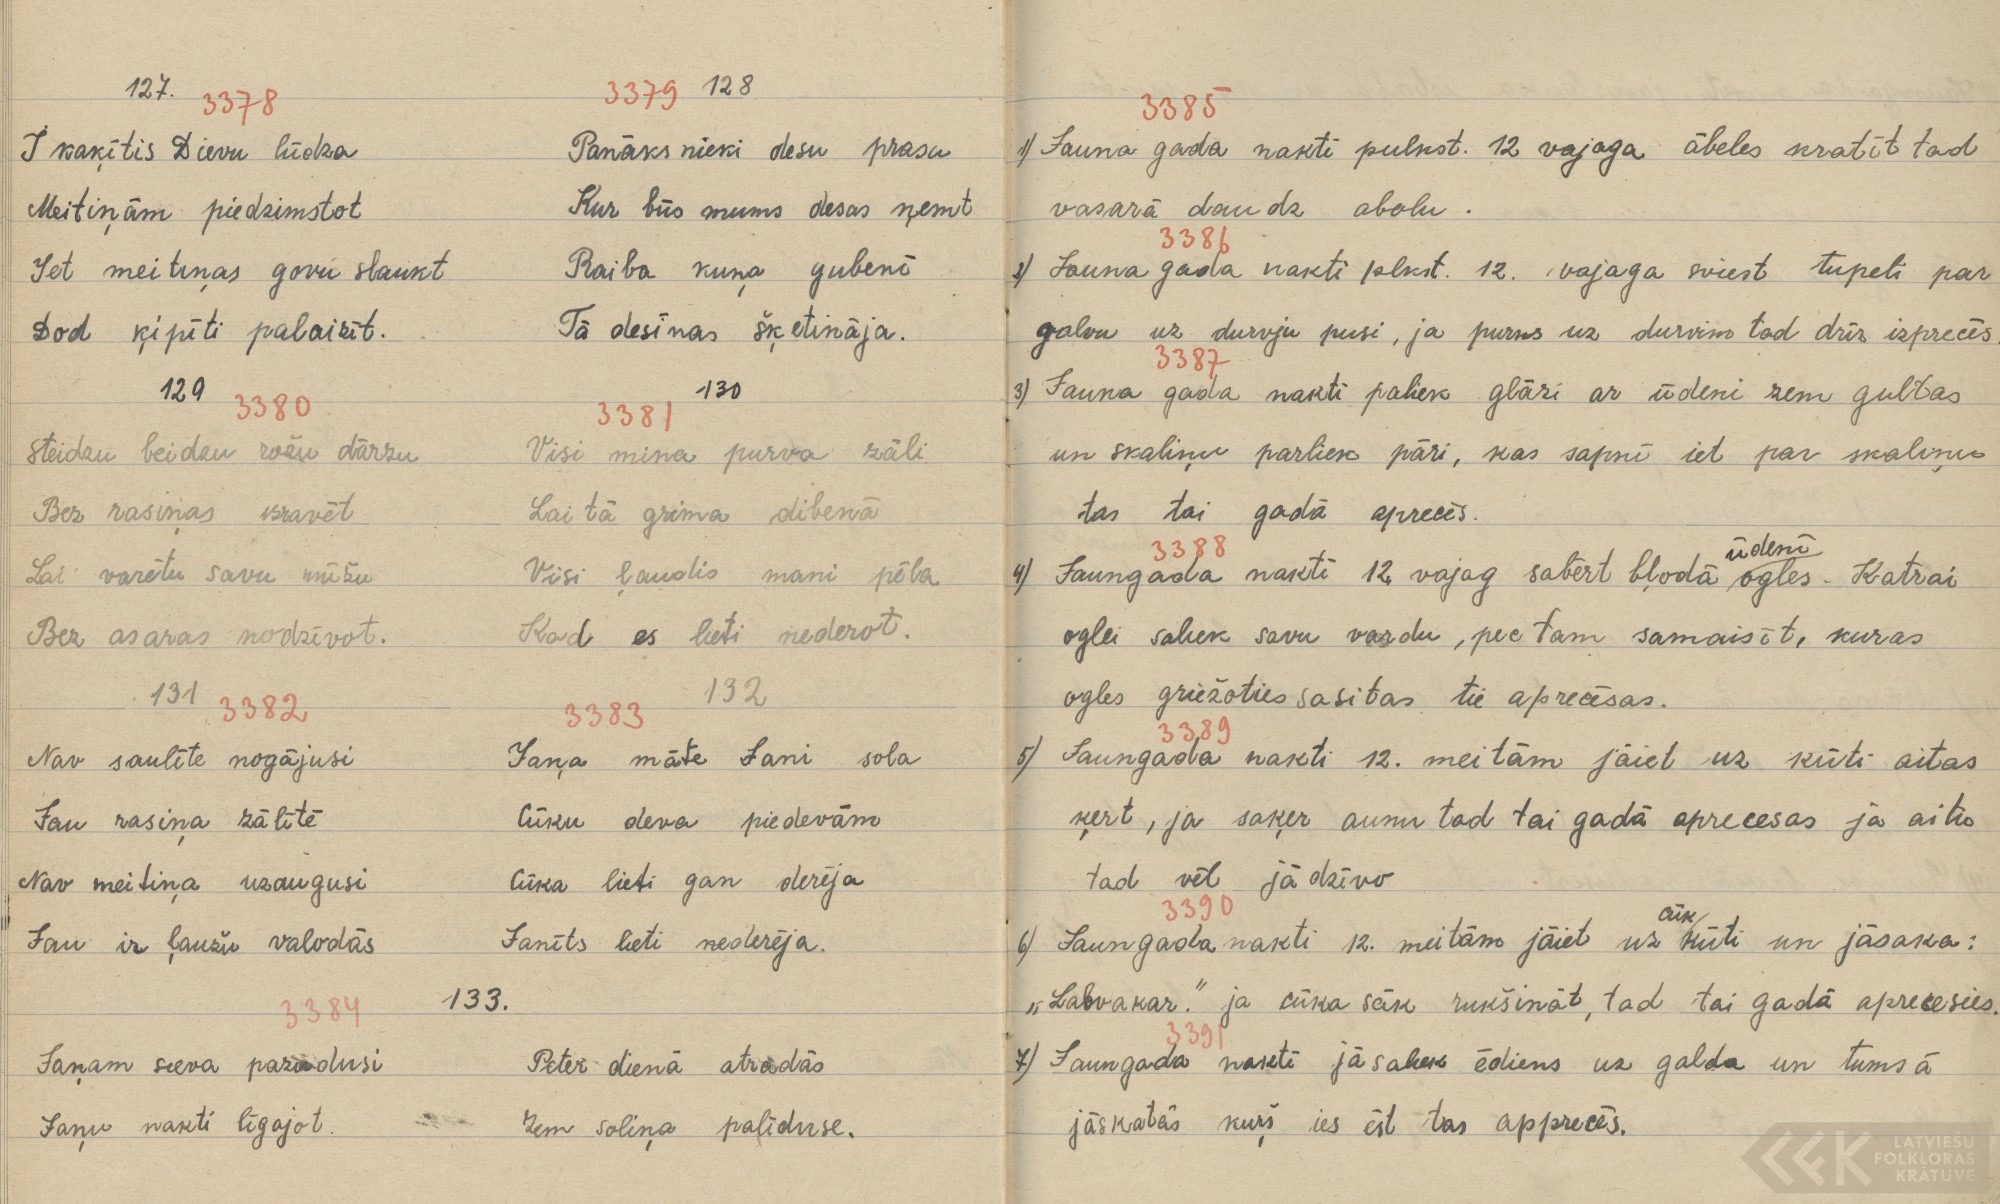 127.
3378
I kaķītis Dievu lūdza
Meitiņām piedzimstot
Iet meitiņas govu slaukt
Dod ķipīti palaizīt.
3379 128
Panāksnieki desu prasa
Kur būs mums desas ņemt
Raiba kuņa gubenī
Tā desiņas šķetināja.
129
3380
Steidzu beidzu rožu dārzu
Bez rasiņas kravēt
Lai varētu savu mūžu
Bez asaras nodzīvot.
130
3381
Visi mina purva zāli
Lai tā grima dibenā
Visi ļaudis mani pēla
Kad es lieti nederot.
131
3382
Nav saulīte nogājusi
Jau rasiņa zālītē
Nav meitiņa uzaugusi
Jau ir ļaužu valodās
132
3383
Jaņa māte Jani sola
Cūku deva piedevām
Cūka lieti gan derēja
Janīts lieti nederēja.
3384 133.
Jaņam sieva pazudusi
Jaņu nakti līgojot.
Pēter dienā atradās
Zem soliņa palīduse.
3385
1) Jauna gada naktī pulkst. 12 vajaga ābeles kratīt tad
vasarā daudz abolu.
3386
2) Jauna gada naktī plkst. 12. vajaga sviest tupeli par
galvu uz durvju pusi, ja purns uz durvim tad drīz izprecēs.
3387
3) Jauna gada naktī paliek glāzi ar ūdeni zem gultas
un skaliņu parliek pāri, kas sapnī iet par skaliņu
tas tai gadā aprecēs.
3388
4) Jaungada naktī 12 vajag sabērt bļodā ūdenī ogles. Katrai
oglei saliek savu vardu, pec tam samaisīt, kuras
ogles griežoties sasitas tie aprecēsas.
3389
5) Jaungada nakti 12. meitām jāiet uz kūti aitas
ķert, ja saķer aunu tad tai gadā aprecesas ja aitu
tad vēl jādzīvo
3390
6) Jaungada nakti 12. meitām jāiet uz cūk kūti un jāsaka:
„Labvakar." ja cūka sāk rukšināt, tad tai gadā aprecesies.
3391
7) Jaungada naktī jāsaliek ēdiens uz galda un tumsā
jāskatās kurš ies ēst tas apprecēs.
LATVIEŠU
FOLKLORAS
KRĀTUVE